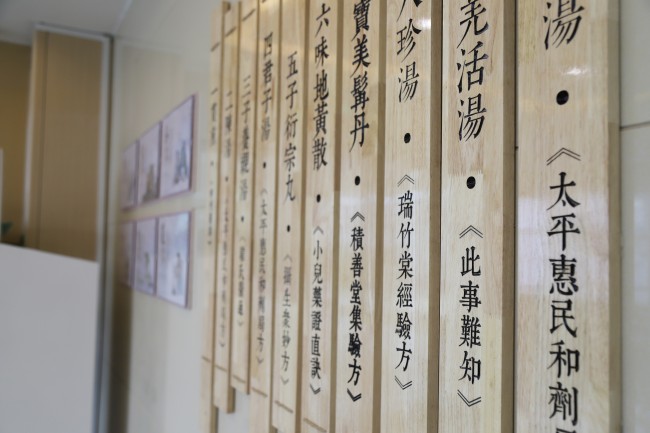 一貫煎
二陳湯·《太平惠民和劑局方》
三子養親湯·《韓氏醫通》
四君子湯·《太平惠民和劑局方》
五子衍宗丸·《攝生眾妙方》
六味地黃散·《小兒藥證直訣》
寶美髯丹·《積善堂集驗方》
八珍湯·《瑞竹棠經驗方》
羌活湯·《此事難知》
湯·《太平惠民和劑